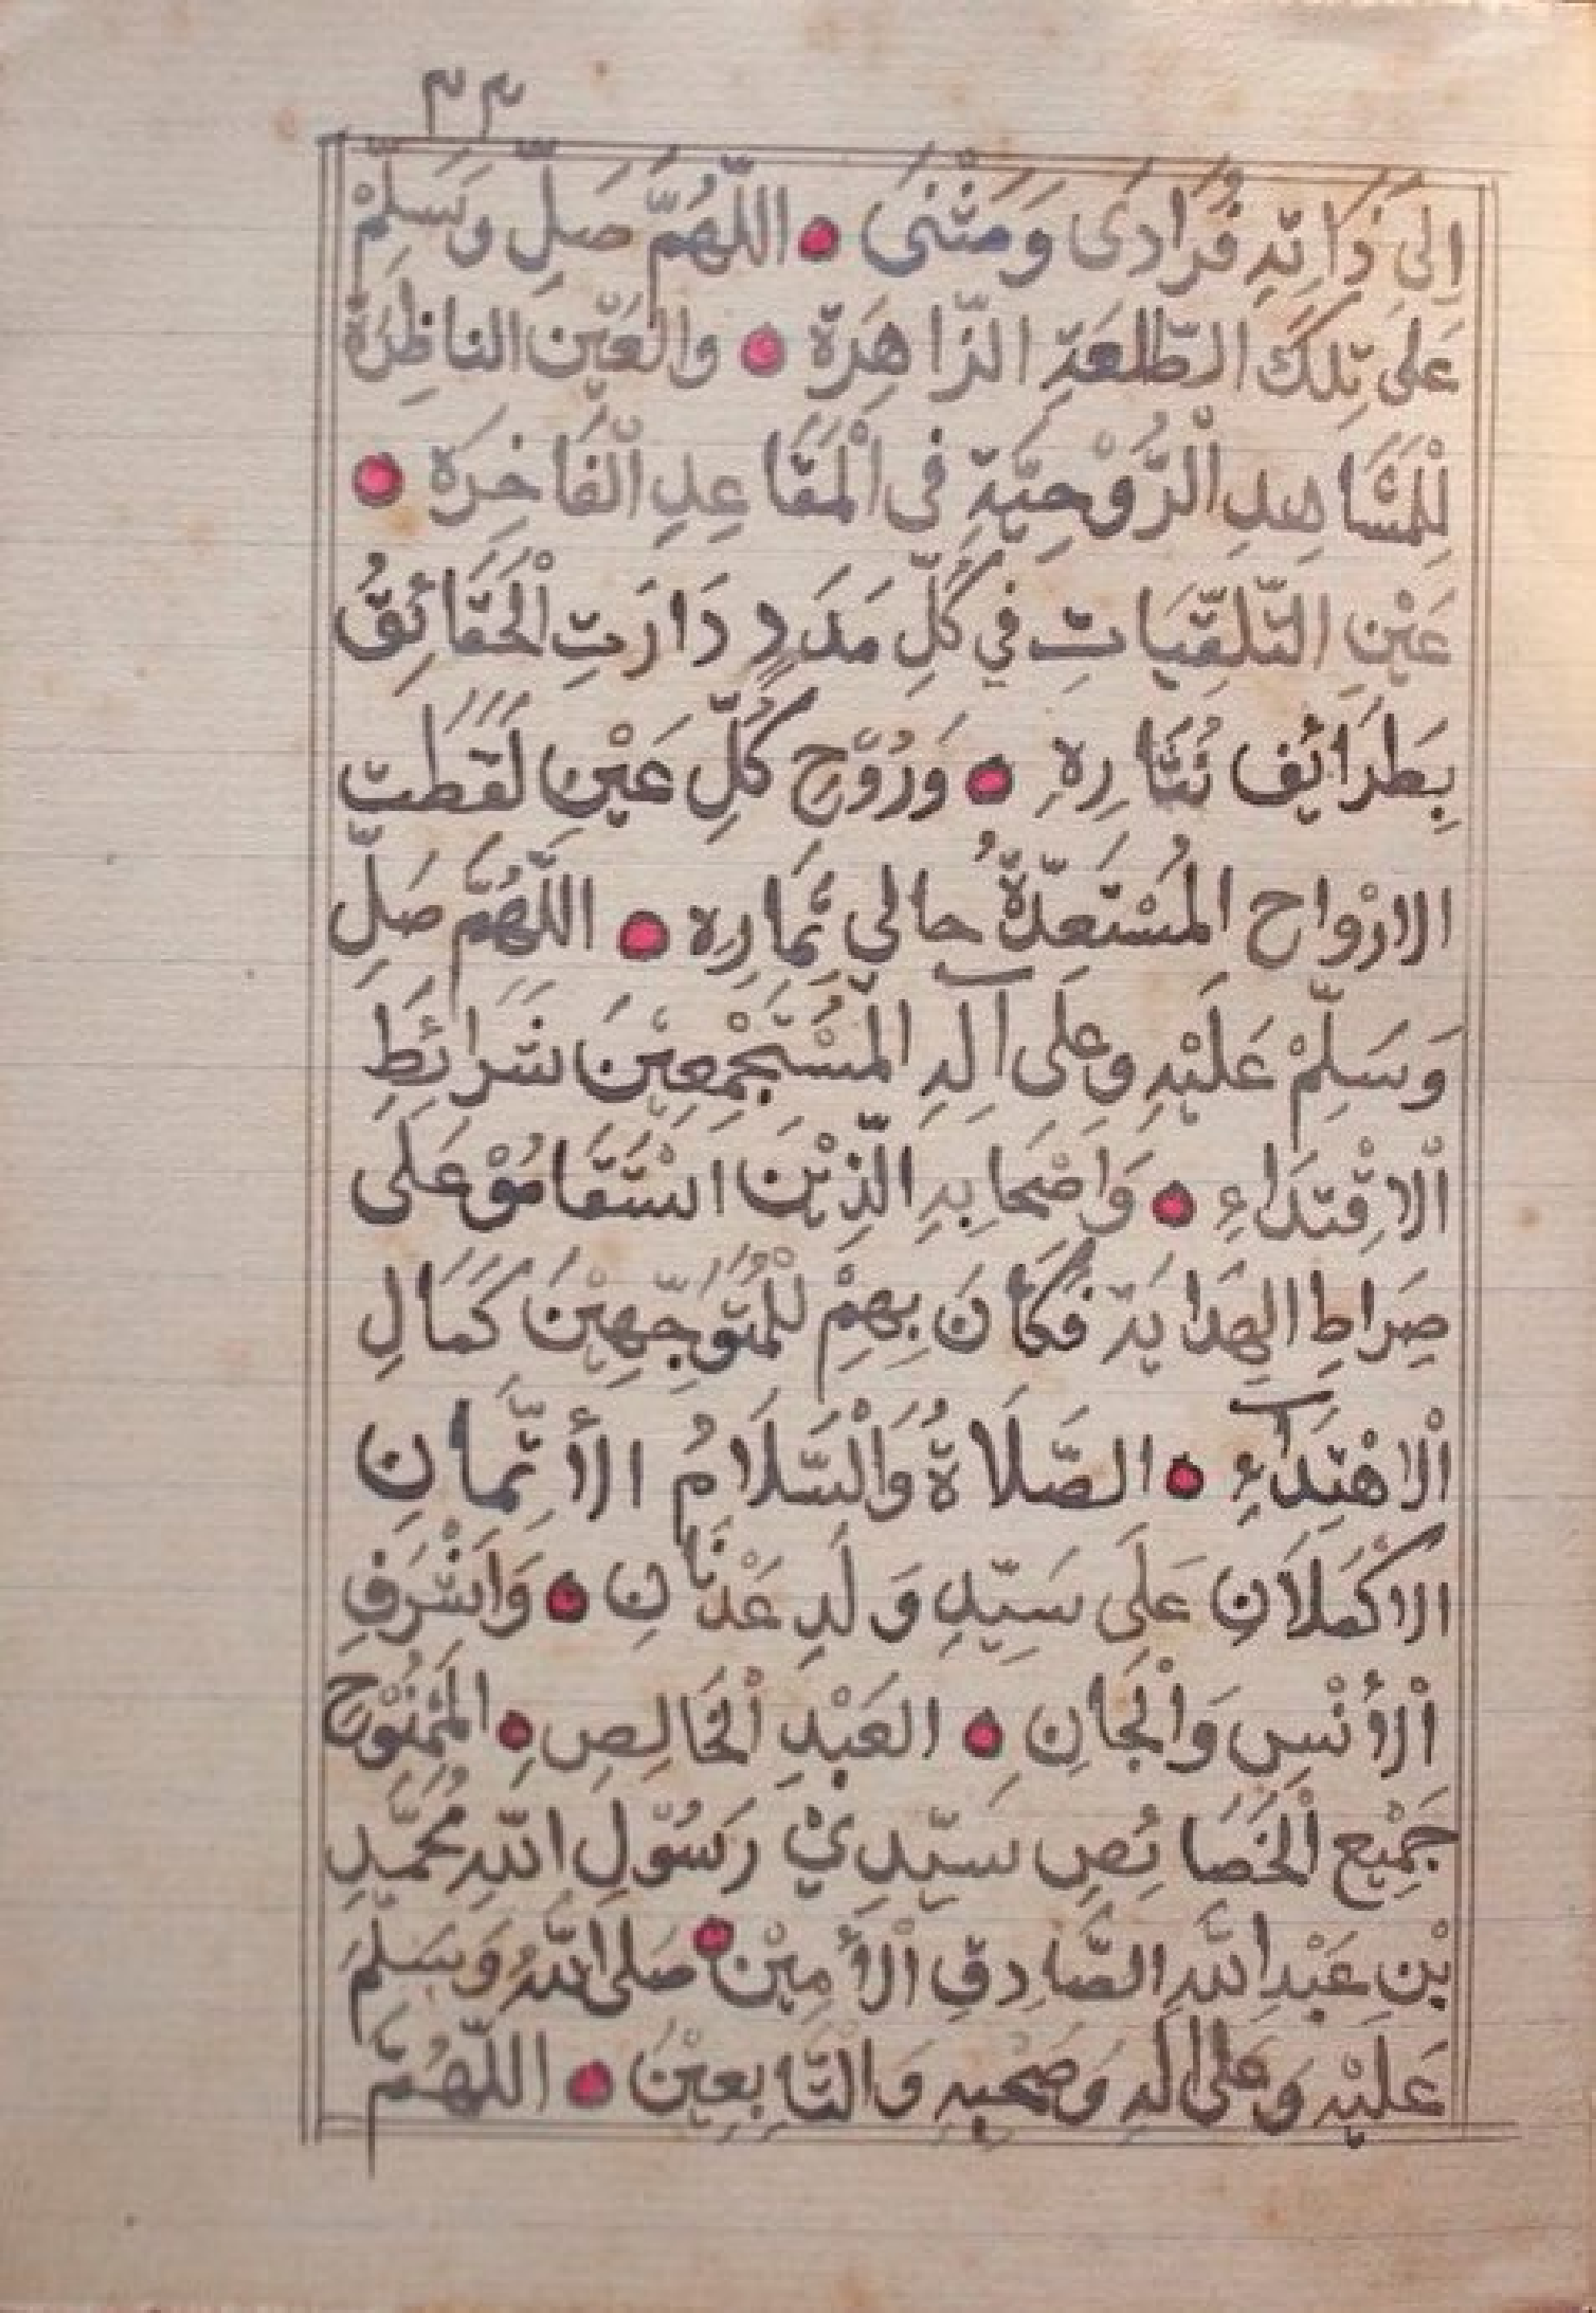 ٢٢
اِلَى ذَاتِهِ فُرَادَى وَمَثْنَى ● اللّهُمَّ صَلِّ وَسَلِّمْ
عَلَى تِلْكَ الطَّلْعَةِ الزَّاهِرَة ● والعَيْنِ الناظِرَة
لِلْمَشَاهِدِ الْرُّوْحِيَّةِ فى الْمَقَاعِدِ الْفَاخِرَة ●
عَيْنِ التَّلَقِّيَاتِ فِي كُلِّ مَدَدٍ دَارَتِ الْحَقَائِقُ
بِطَرَائِفِ نُثَارِهِ ● وَرُوْحِ كُلِّ عَيْنٍ لَقَطَت
الارْواح المُسْتَعِدَّةُ حالي ثِمَارِه ● اللّهُمَّ صَلِّ
وَسَلِّمْ عَلَيْهِ وعَلى آلِهِ المُسْتَجْمِعِيْنَ شَرَائِطِ
الْاِقْتِدَاءِ ● وَاصْحَابِهِ الَّذِيْنَ اسْتَقَامُوْ عَلَى
صِرَاطِ الهِدَايَة فَكَانَ بِهِمْ لِلْمُتَوَجِّهِيْنَ كَمَالِ
الْاهْتِدَآءِ ● الصَّلَاةُ وَالْسَّلَامُ الأَتَمَّانِ
الاكْمَلَانِ عَلَى سَيِّدِ وَلَدِ عَدْنَانِ ● وَاَشْرَفِ
الْأُنْسِ وَالْجَانِ ● العَبْدِ الْخَالِصِ ● المَمْنُوْحِ
جَمِيْعِ الْخَصَائِصِ سَيِّدِيْ رَسُوْلِ اللهِ مُحَمَّدِ
بْنِ عَبْدِ اللهِ الصَّادِقِ الْأَمِيْنِ ● صَلى اللهُ وَسَلَّمَ
عَلَيْهِ وَعَلى الِهِ وَصَحْبِهِ وَالتَّابِعِيْنَ ● اللّهُمَّ